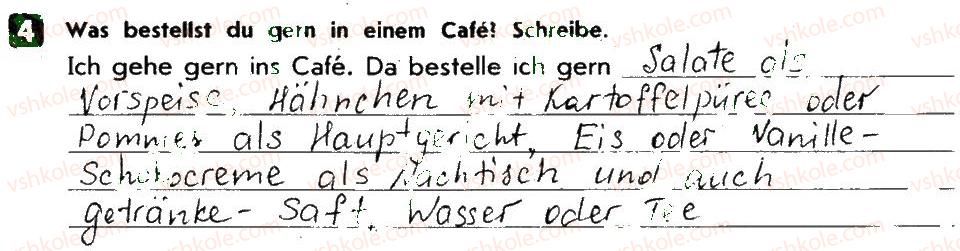 4 Was bestellst du gern in einem Café? Schreibe.
Ich gehe gern ins Café. Da bestelle ich gern Salate als
Vorspeise, Hähnchen mit Kartoffelpüree oder
Pommes als Hauptgericht, Eis oder Vanille-
Schokocreme als Nachtisch und auch
getränke - Saft, Wasser oder Tee